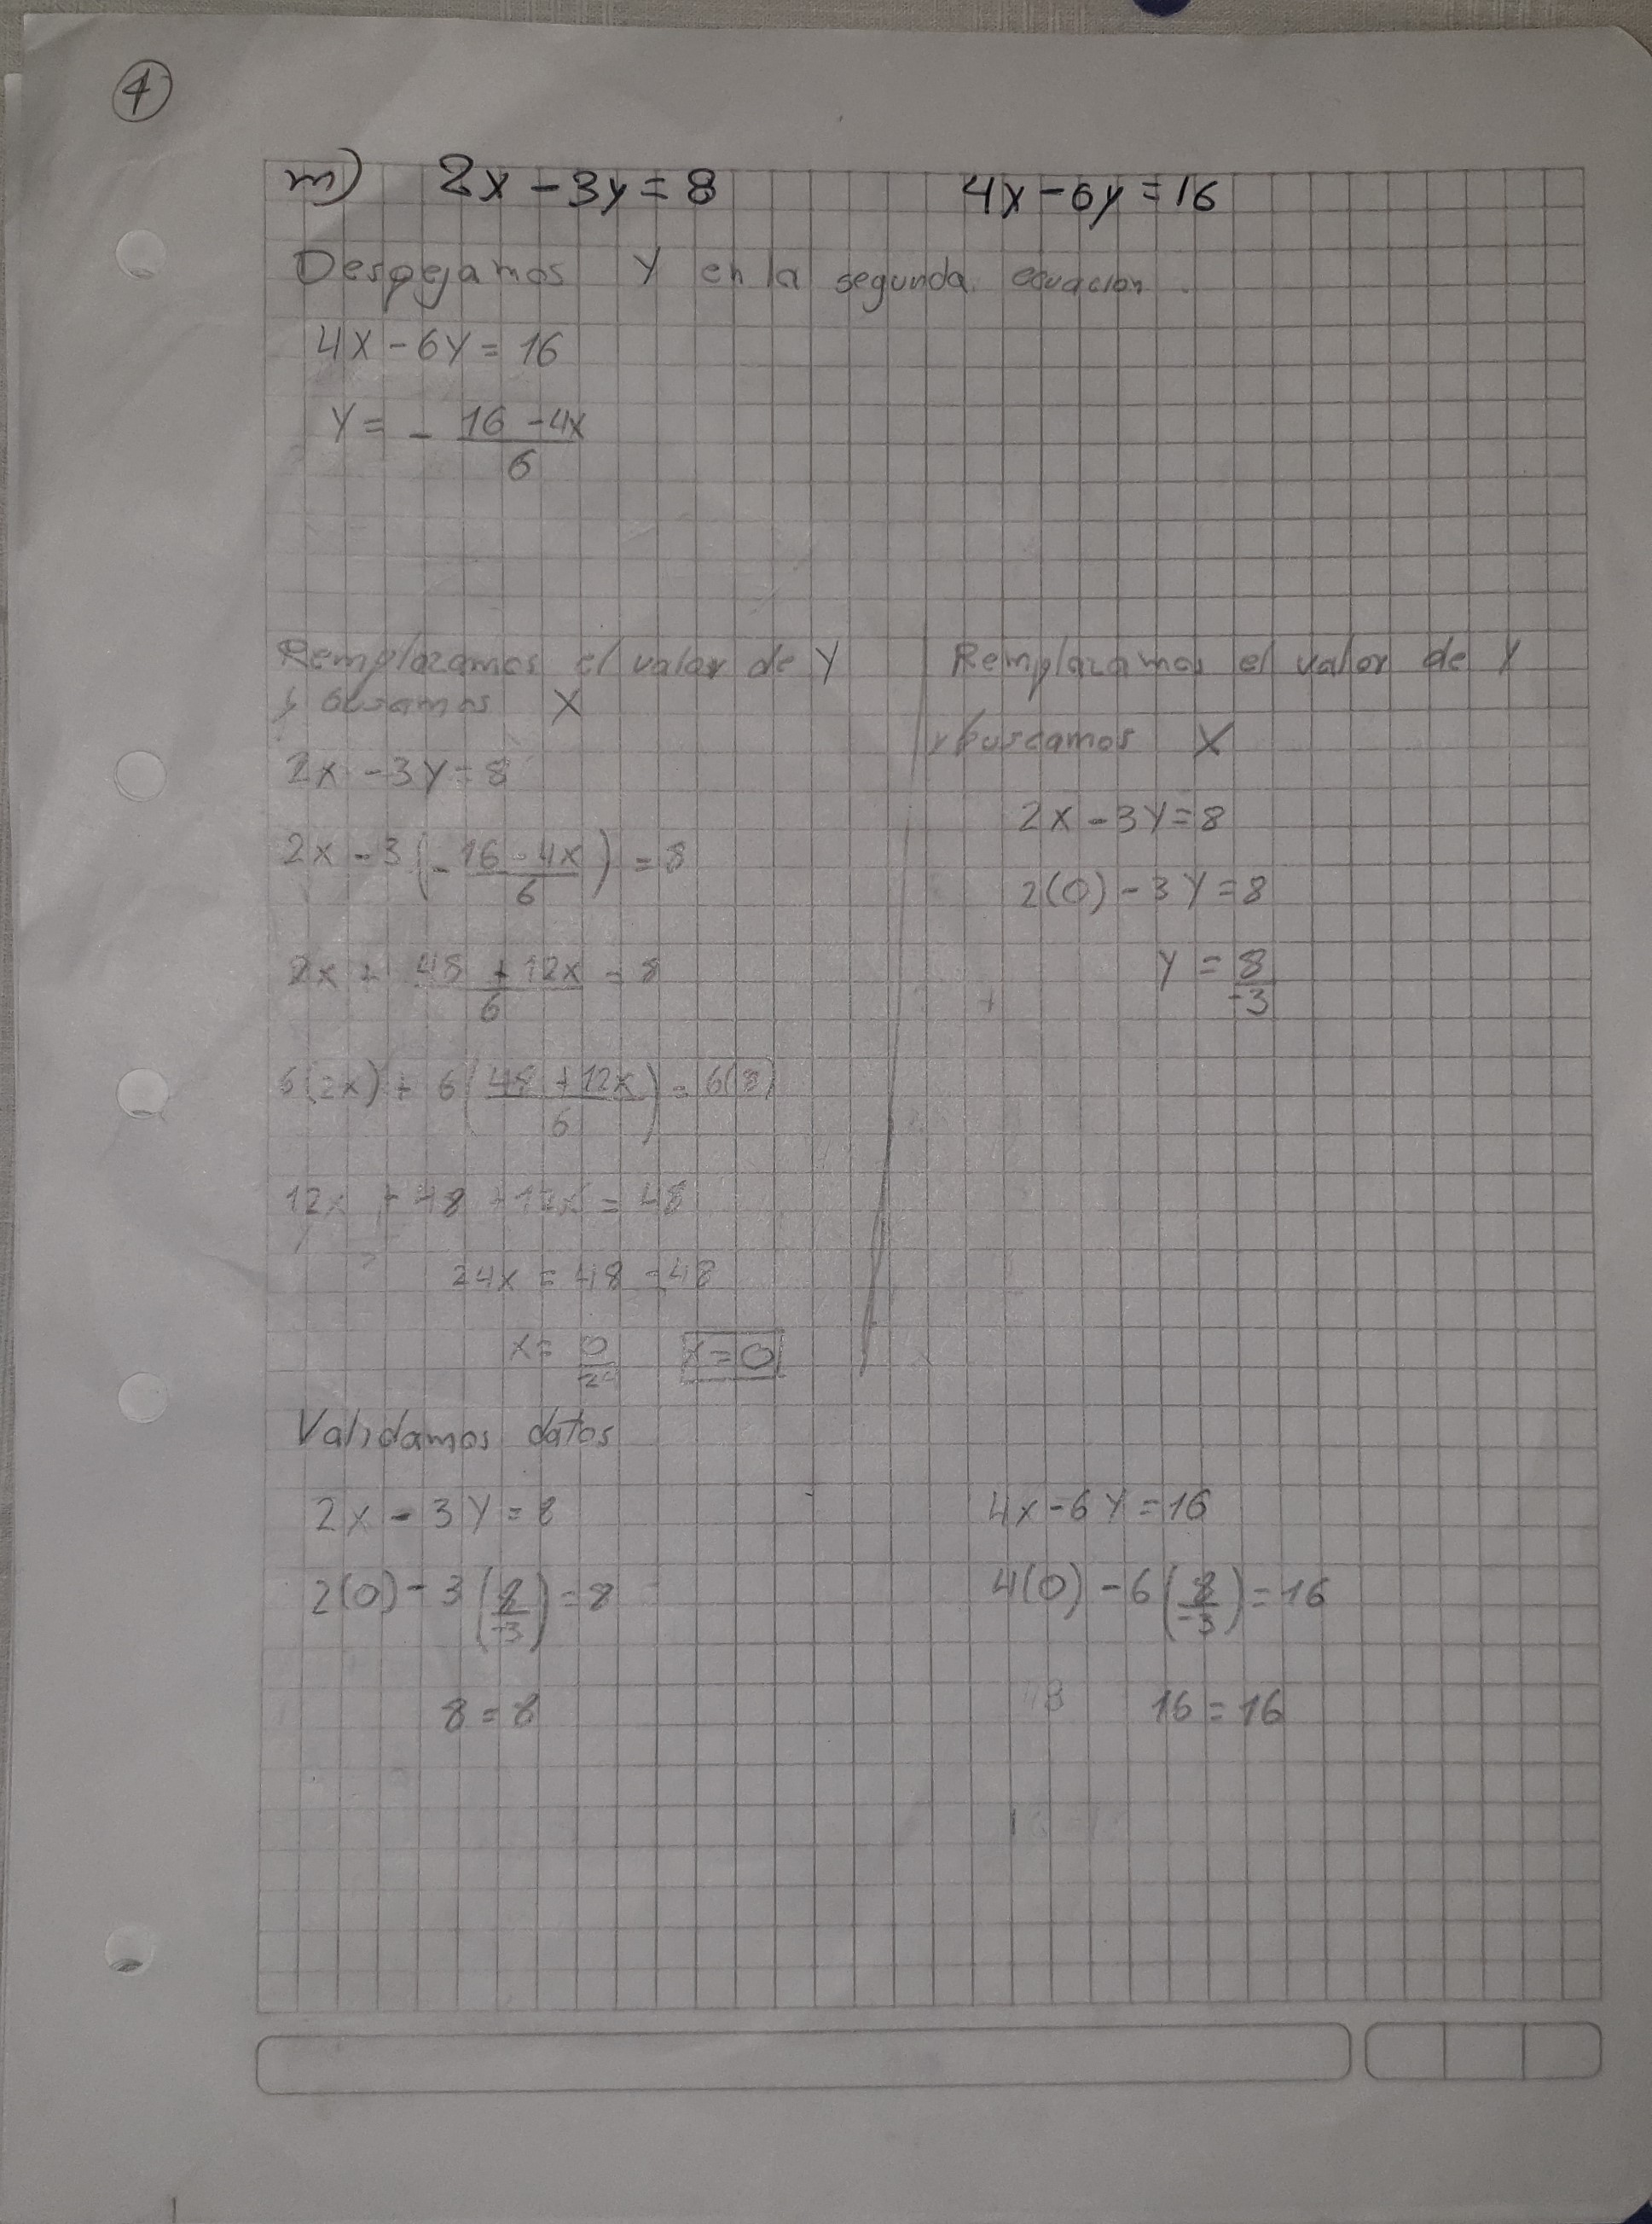 4
m) 2x - 3y = 8 4x - 6y = 16
Despejamos Y en la segunda ecuacion.
4X - 6Y = 16
Y = - 16 - 4X / 6
Remplazamos el valor de Y
X
2X - 3Y = 8
2X - 3 ( - 16 - 4X / 6 ) = 8
2X + 48 + 12X / 6 = 8
6(2X) + 6 ( 48 + 12X / 6 ) = 6(8)
12X + 48 + 12X = 48
24X = 48 - 48
X = 0 / 24 X = 0
Remplazamos el valor de Y
y buscamos X
2X - 3Y = 8
2(0) - 3Y = 8
Y = 8 / -3
Validamos datos
2X - 3Y = 8 4X - 6Y = 16
2(0) - 3 ( 8 / -3 ) = 8 4(0) - 6 ( 8 / -3 ) = 16
8 = 8 16 = 16